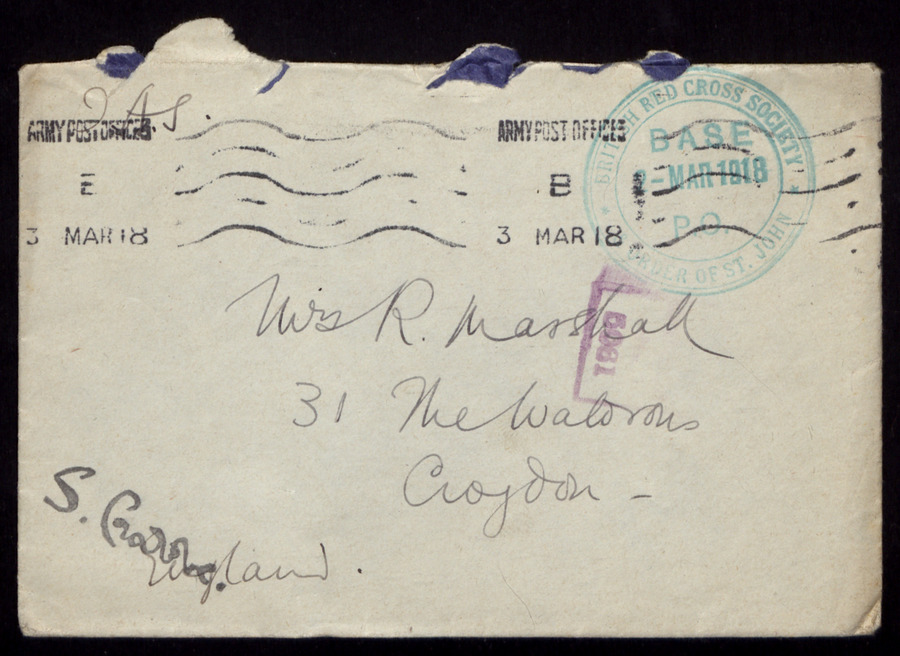 ARMY POST OFFICES ARMY POST OFFICES
E B
3 MAR 18 3 MAR 18
BRITISH RED CROSS SOCIETY
BASE
-MAR 1918
P.O.
ORDER OF ST. JOHN
Mrs R. Marshall
31 The Waldrons
Croydon -
England.
S.